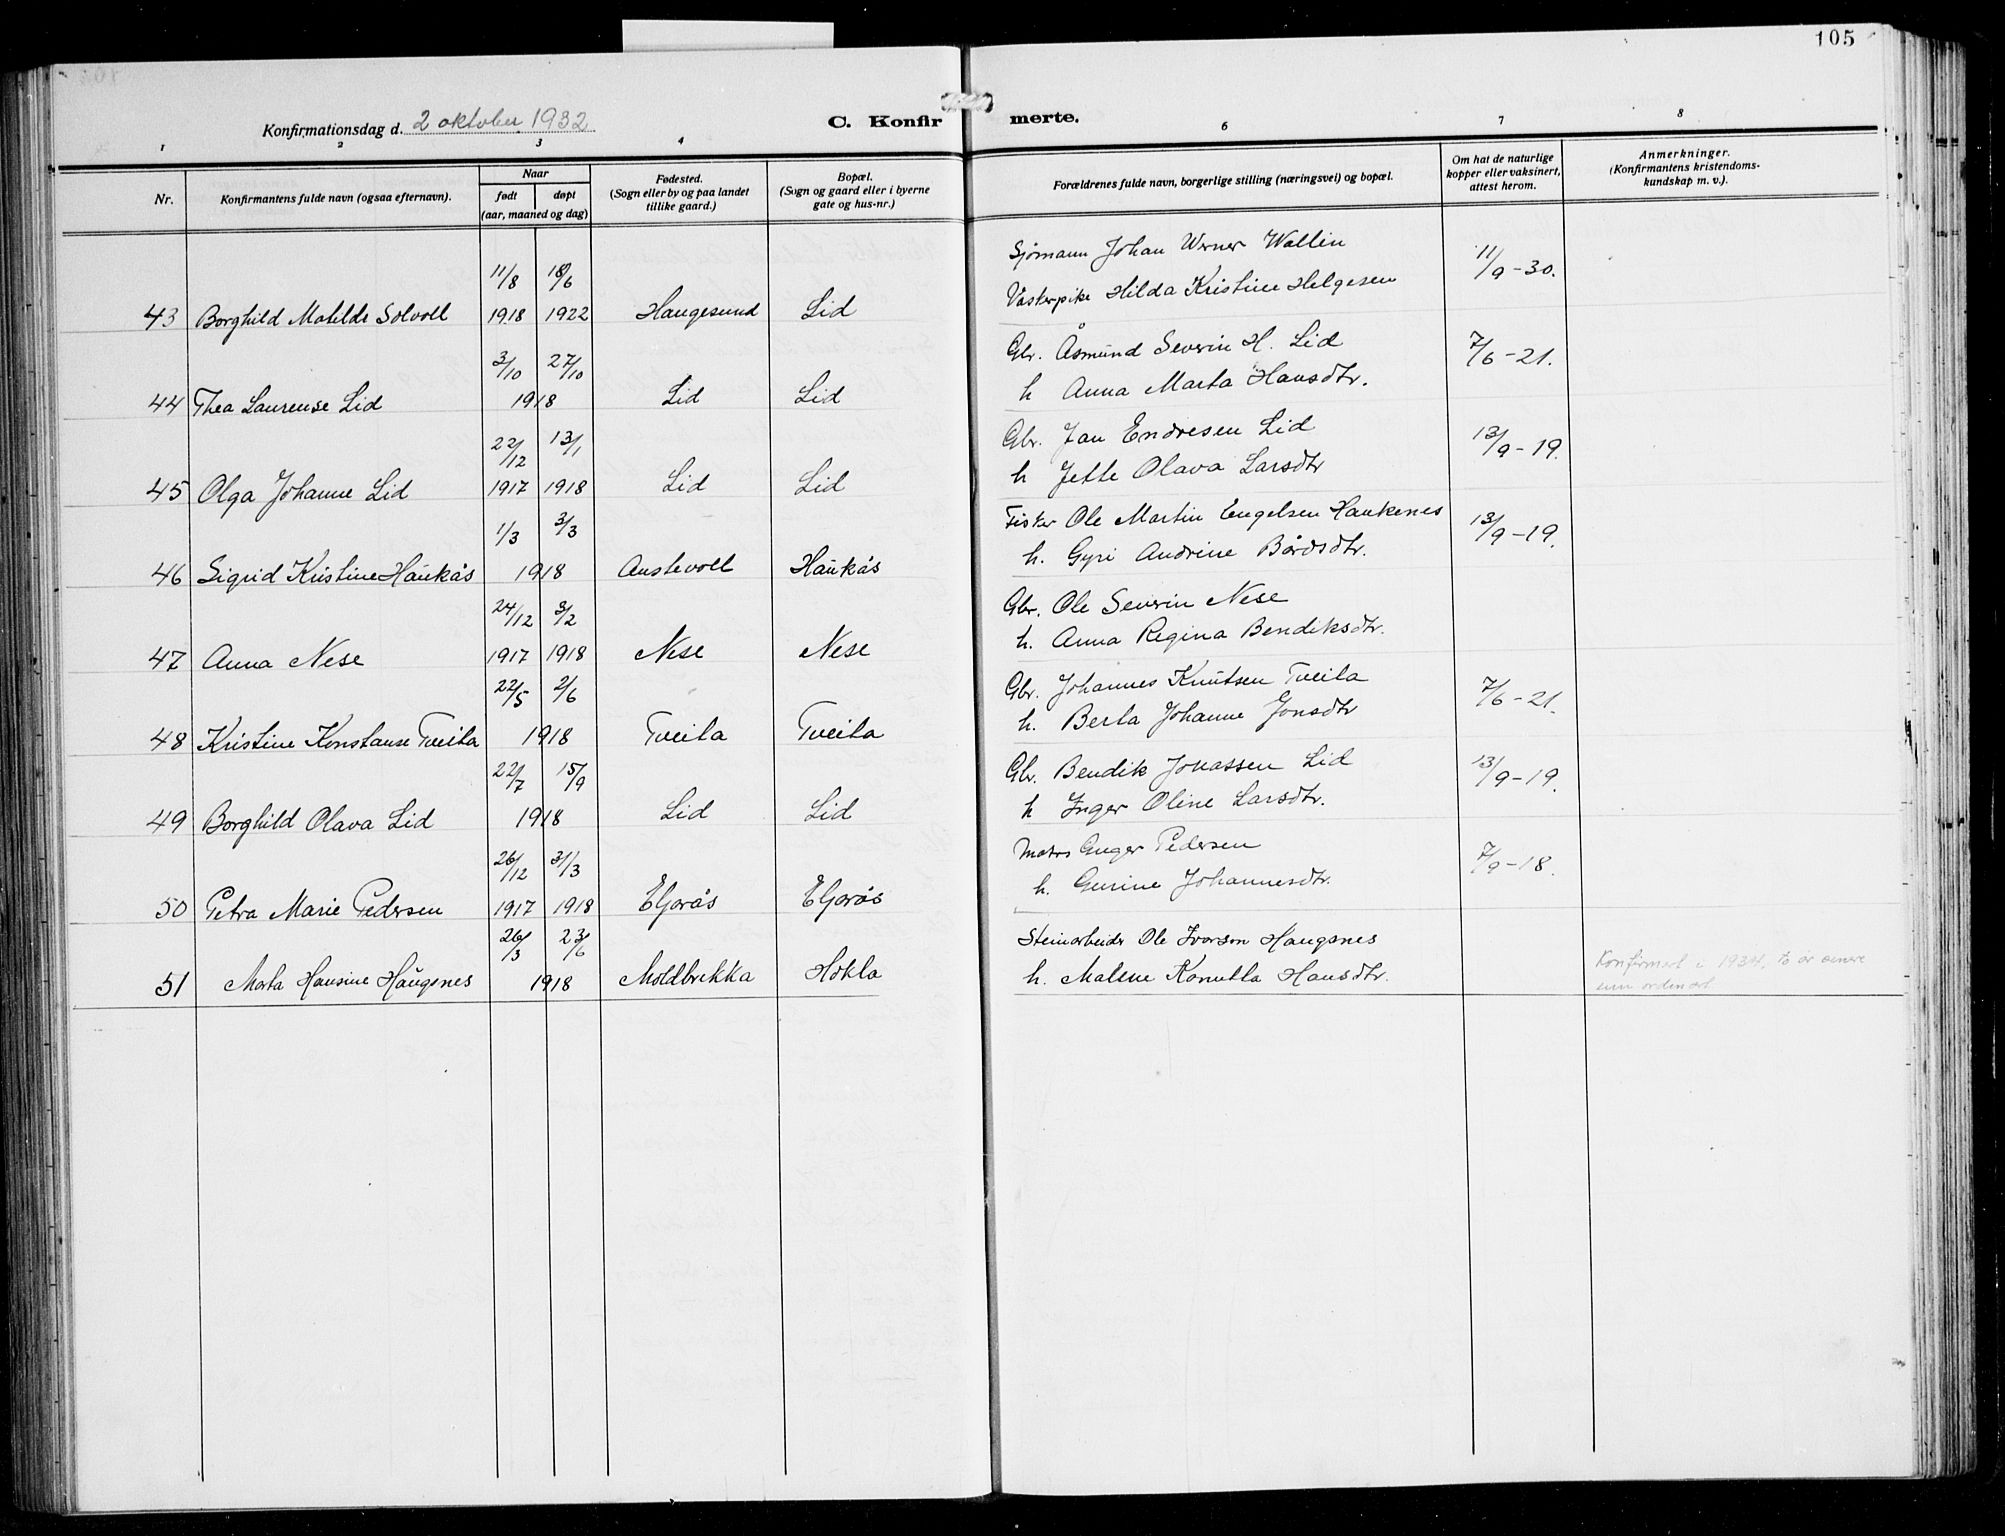 105
Konfirmationsdag d. 2 oktober 1932
C. Konfir merte.
1 2 3 4 6 7 8
Nr. Konfirmantens fulde navn (ogsaa efternavn). Naar født døpt (aar, maaned og dag) Fødested. (Sogn eller by og paa landet tillike gaard.) Bopæl. (Sogn og gaard eller i byerne gate og hus-nr.) Forældrenes fulde navn, borgerlige stilling (næringsvei) og bopæl. Om hat de naturlige kopper eller vaksinert, attest herom. Anmerkninger. (Konfirmantens kristendoms-kundskap m. v.).
11/8 18/6 Sjømann Johan Werner Wallin 11/9-30.
43 Borghild Matilde Solvoll 1918 1922 Haugesund Lid Vaskerpike Hilda Kristine Helgesen
3/10 27/10 Gbr. Åsmund Severin H. Lid 7/6-21.
44 Thea Laurense Lid 1918 Lid Lid h Anna Marta Hansdtr.
22/12 13/1 Gbr. Jan Endresen Lid 13/9-19.
45 Olga Johanne Lid 1917 1918 Lid Lid h Jette Olava Larsdtr
1/3 3/3 Fisker Ole Martin Engelsen Haukenes 13/9-19.
46 Sigrid Kristine Haukås 1918 Austevoll Haukås h. Gyri Andrine Bårdsdtr.
24/12 3/2 Gbr. Ole Severin Nese
47 Anna Nese 1917 1918 Nese Nese h. Anna Regina Bendiksdtr.
22/5 2/6 Gbr. Johannes Knutsen Tveita 7/6-21.
48 Kristine Konstanse Tveita 1918 Tveita Tveita h. Berta Johanne Jonsdtr
22/7 15/9 Gbr. Bendik Jonassen Lid 13/9-19.
49 Borghild Olava Lid 1918 Lid Lid h Inger Oline Larsdtr.
26/12 31/3 Pedersen 7/9-18.
50 Petra Marie Pedersen 1917 1918 Eljarås Eljarås h. Gurine Johannesdtr.
26/3 23/6 Steinarbeider Ole Ivarson Haugsnes
51 Marta Hansine Haugsnes 1918 Moldbrekka Hokla h. Malene Kornutta Hansdtr. Konfirmert i 1934, to år senere
enn ordinært